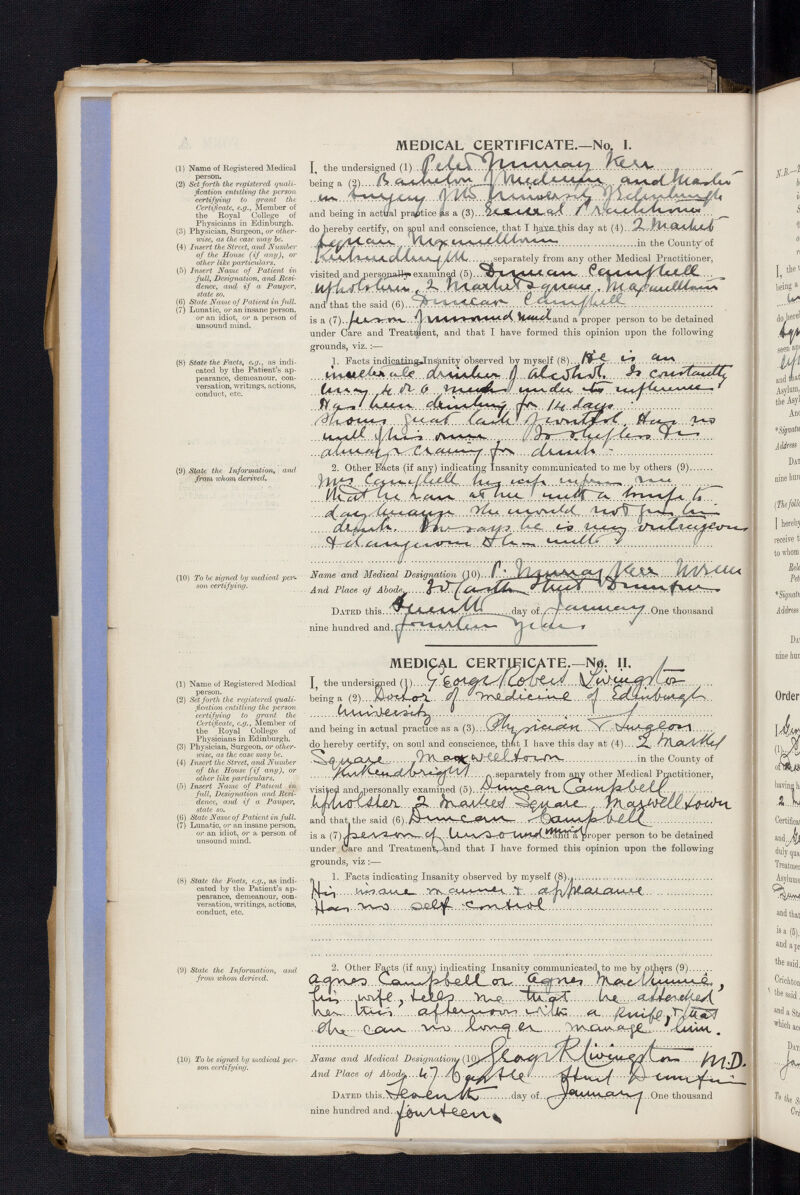 MEDICAL CERTIFICATE.—No. I.
(1) Name of Registered Medical person.
(2) Set forth the registered qualification entitling the person certifying to grant the Certificate, e.g., Member of the Royal College of Physicians in Edinburgh.
(3) Physician, Surgeon, or otherwise, as the case may be.
(4) Insert the Street, and Number of the House (if any), or other like particulars.
(5) Insert Name of Patient in full, Designation, and Residence, and if a Pauper, state so.
(6) State Name of Patient in full.
(7) Lunatic, or an insane person, or an idiot, or a person of unsound mind.
(8) State the Facts, e.g., as indicated by the Patient's appearance, demeanour, conversation, writings, actions, conduct, etc.
(9) State the Information, and from whom derived.
(10) To be signed by medical person certifying.
I, the undersigned (1) Peter Murray Kerr
being a (2) Bachelor of Medicine and Master
in Surgery of the University of Edinburgh
and being in actual practice as a (3) General Practitioner
do hereby certify, on soul and conscience, that I have this day at (4) 2 Market
Square Maxwelltown in the County of
Kirkcudbright separately from any other Medical Practitioner,
visited and personally examined (5) Duncan Campbell
upholsterer, 2 Market Square, Maxwelltown
and that the said (6) Duncan Campbell
is a (7) person of unsound mind and a proper person to be detained
under Care and Treatment, and that I have formed this opinion upon the following
grounds, viz. :—
1. Facts indicating Insanity observed by myself (8) He is an
inveterate drinker of alcohol. Is constantly
under its influence
Has been drinking for 14 days
Shows great lack of control. Has no
will of his own, Is shiftless & is
always craving for drink.
2. Other Facts (if any) indicating Insanity communicated to me by others (9)
Mrs Campbell his wife informs me
that he ran at her with a knife to
day because she would not give him
drink. She says he is very outrageous
& dangerous
Name and Medical Designation (10) P. Murray Kerr
And Place of Abode Castle Street Dumfries
DATED this Seventh day of January One thousand
nine hundred and fourteen years
MEDICAL CERTIFICATE.—No. II.
(1) Name of Registered Medical person.
(2) Set forth the registered qualification entitling the person certifying to grant the Certificate, e.g., Member of the Royal College of Physicians in Edinburgh.
(3) Physician, Surgeon, or otherwise, as the case may be.
(4) Insert the Street, and Number of the House (if any), or other like particulars.
(5) Insert Name of Patient in full, Designation and Residence, and if a Pauper, state so.
(6) State Name of Patient in full.
(7) Lunatic, or an insane person, or an idiot, or a person of unsound mind.
(8) State the Facts, e.g., as indicated by the Patient's appearance, demeanour, conversation, writings, actions, conduct, etc.
(9) State the Information, and from whom derived.
(10) To be signed by medical person certifying.
I, the undersigned (1) George Robert Livingston
being a (2) Doctor of medicine of Edinburgh
University
and being in actual practice as a (3) Physician & Surgeon
do hereby certify, on soul and conscience, that I have this day at (4) 2 Market
Square Maxwelltown in the County of
Kirkcudbright separately from any other Medical Practitioner,
visited and personally examined (5) Duncan Campbell
Upholster 2 Market Square, Maxwelltown
and that the said (6) Duncan Campbell
is a (7) person of unsound mind and a proper person to be detained
under Care and Treatment, and that I have formed this opinion upon the following
grounds, viz :—
1. Facts indicating Insanity observed by myself (8)
His insane manner & appearance
Has no self control
2. Other Facts (if any) indicating Insanity communicated to me by others (9)
Agnes Campbell or Agnes Mackinnie,
his wife, tells me that he attacked
her this afternoon with a knife, & that
she can no longer manage him.
Name and Medical Designation (10) George R Livingston M.D.
And Place of Abode 47 Castle Street Dumfries
DATED this Seventh day of January One thousand
nine hundred and fourteen.